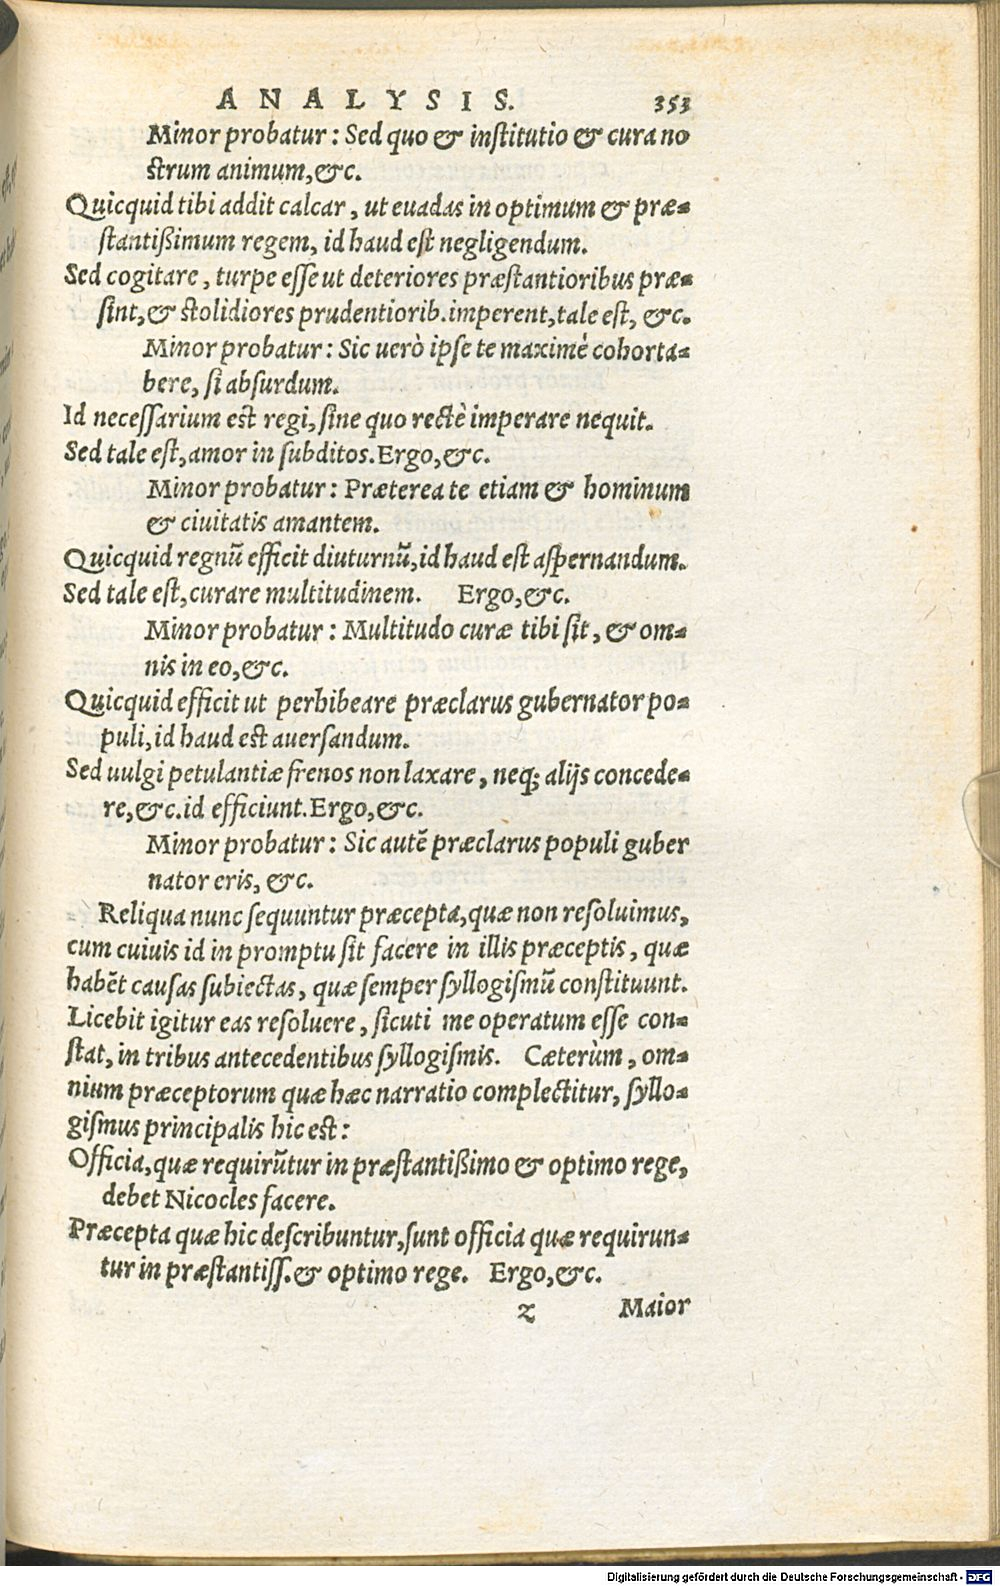 ANALYSIS. 353
Minor probatur: Sed quo & inſtitutio & cura no
ſtrum animum, &c.
Quicquid tibi addit calcar, ut euadas in optimum & præ-
ſtantißimum regem, id haud eſt negligendum.
Sed cogitare, turpe eſſe ut deteriores præſtantioribus præ-
ſint, & ſtolidiores prudentiorib. imperent, tale eſt, &c.
Minor probatur: Sic uerò ipſe te maximè cohorta-
bere, ſi abſurdum.
Id neceſſarium eſt regi, ſine quo rectè imperare nequit.
Sed tale eſt, amor in ſubditos. Ergo, &c.
Minor probatur: Præterea te etiam & hominum
& ciuitatis amantem.
Quicquid regnū efficit diuturnū, id haud eſt aſpernandum.
Sed tale eſt, curare multitudinem. Ergo, &c.
Minor probatur: Multitudo curæ tibi ſit, & om-
nis in eo, &c.
Quicquid efficit ut perhibeare præclarus gubernator po-
puli, id haud eſt auerſandum.
Sed uulgi petulantiæ frenos non laxare, neq; alijs concede-
re, &c. id efficiunt. Ergo, &c.
Minor probatur: Sic autē præclarus populi guber
nator eris, &c.
Reliqua nunc ſequuntur præcepta, quæ non reſoluimus,
cum cuiuis id in promptu ſit facere in illis præceptis, quæ
habēt cauſas ſubiectas, quæ ſemper ſyllogiſmū conſtituunt.
Licebit igitur eas reſoluere, ſicuti me operatum eſſe con-
ſtat, in tribus antecedentibus ſyllogiſmis. Cæterùm, om-
nium præceptorum quæ hæc narratio complectitur, ſyllo-
giſmus principalis hic eſt:
Officia, quæ requirūtur in præſtantißimo & optimo rege,
debet Nicocles facere.
Præcepta quæ hic deſcribuntur, ſunt officia quæ requirun-
tur in præſtantiſſ. & optimo rege. Ergo, &c.
z Maior
Digitalisierung gefördert durch die Deutsche Forschungsgemeinschaft - DFG